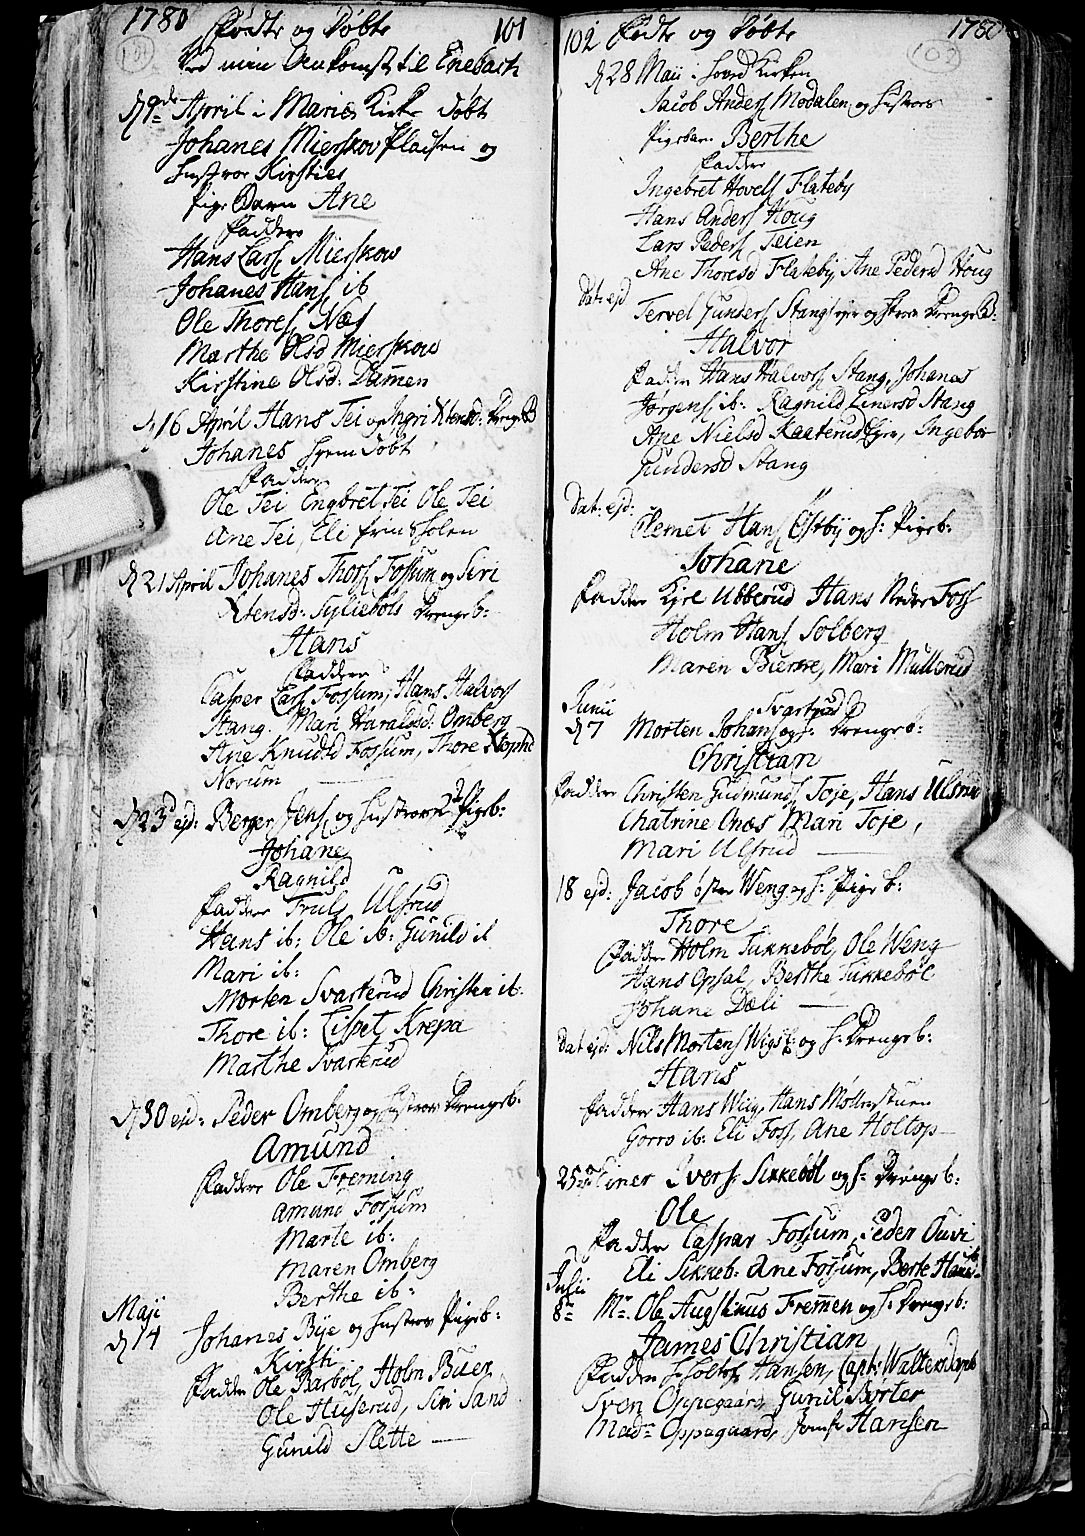 1780 Fødte og Døbte 101
Ved min Ankomst til Enebach
d 9de April i Maries Kirke døbt
Johanes Mierskov Pladsen og
Hustroe Kirsties
Pige Barn Ane
Faddere
Hans Lars Mierskow
Johanes Hans ib
Ole Thores Næs
Marthe Olsd Mierskow
Kirstine Olsd: Dammen
d 16 April Hans Tei og Ingri Xtensd: Drengeb
Johanes hjemdøbt
Faddere
Ole Tei Engbret Tei Ole Tei
Ane Tei, Eli
d 21 April Johanes Thors Fossum og Siri
Xtensd: Syliebøls Drengeb:
Hans
Faddere
Casper Lars Fossum, Hans Halvors
Stang. Mari Haralsd: Omberg
Ane Knudsd Fossum, Thore Xtophs
Norum
d 23 ejd: Berger Jens og Hustroes Pigeb:
Johane
Ragnild
Faddere Truls Ulsrud
Hans ib: Ole ib: Gunild ib
Mari ib:
Morten Svarterud Christen ib:
Thore ib: Lispet Krepa
Marthe Svarterud
d 30 ejd: Peder Omberg og Hustroes Drengeb:
Amund
Faddere Ole Freming
Amund Fossum
Marte ib:
Maren Omberg
Berthe ib:
Maji
d 14 Johanes Bÿe og Hustroes Pigeb:
Kirsti
Faddere Ole Barbøl, Holm Buer
Ole Huserud, Siri Sand
Gunild Slette
102 Fødte og Døbte 1780
102
d 28 Maii i hoved Kirken
Jacob Anders Modalen og Hustroes
Pigebarn Berthe
Faddere
Ingebret Hovels Flateby
Hans Anders Houg
Lars Peders Teien
Ane Thoresd Flateby, Ane Pedersd Houg
Dat: ejd Tervel Gunders Stangs eje og Hstroes Drengeb:
Halvor
Faddere Hans Halvors Stang, Johanes
Jørgens ib: Ragnild Einersd Stang
Ane Nielsd Kaaterud Eje, Ingebor
Gundersd Stang
Dat: ejd:
Clemet Hans Østby og H: Pigeb:
Johane
Faddere Kjel Ubberud Hans Neder Foss
Holm Hans Solberg
Maren Bierke, Mari Mullerud
Junii Svartrud
d 7 Morten Johans og H: Drengeb:
Christian
Faddere Christen Gudmunds Toje, Hans Ulsrud
Chatrine Onæs Mari Toje,
Mari Ulsrud
18 ejd: Jacob øster Weng og H: Pigeb:
Thore
Faddere Holm Tukkebøl, Ole Weng
Hans Opsal, Berthe Tukkebøl
Johane Dæli
Dat ejd: Nils Mortens Wigs E: og H: Drengeb:
Hans
Faddere Hans Wiig, Hans Møllerstuen
Gorro ib: Eli Foss, Ane Holtop
25de Einer Ivers: Sikkebøl og H: Drengeb:
Ole
Faddere Caspar Fossum, Peder Ouvi
Eli Sikkeb: Ane Fossum, Berte
Julii
8de Mr. Ole Augstinus Fremen og H: Drengeb:
James Christian
Faddere Hansen, Capt: Walterstorph
Sven Oppegaard, Gunil Børter
Made Oppegaard, Jomfr Hansen